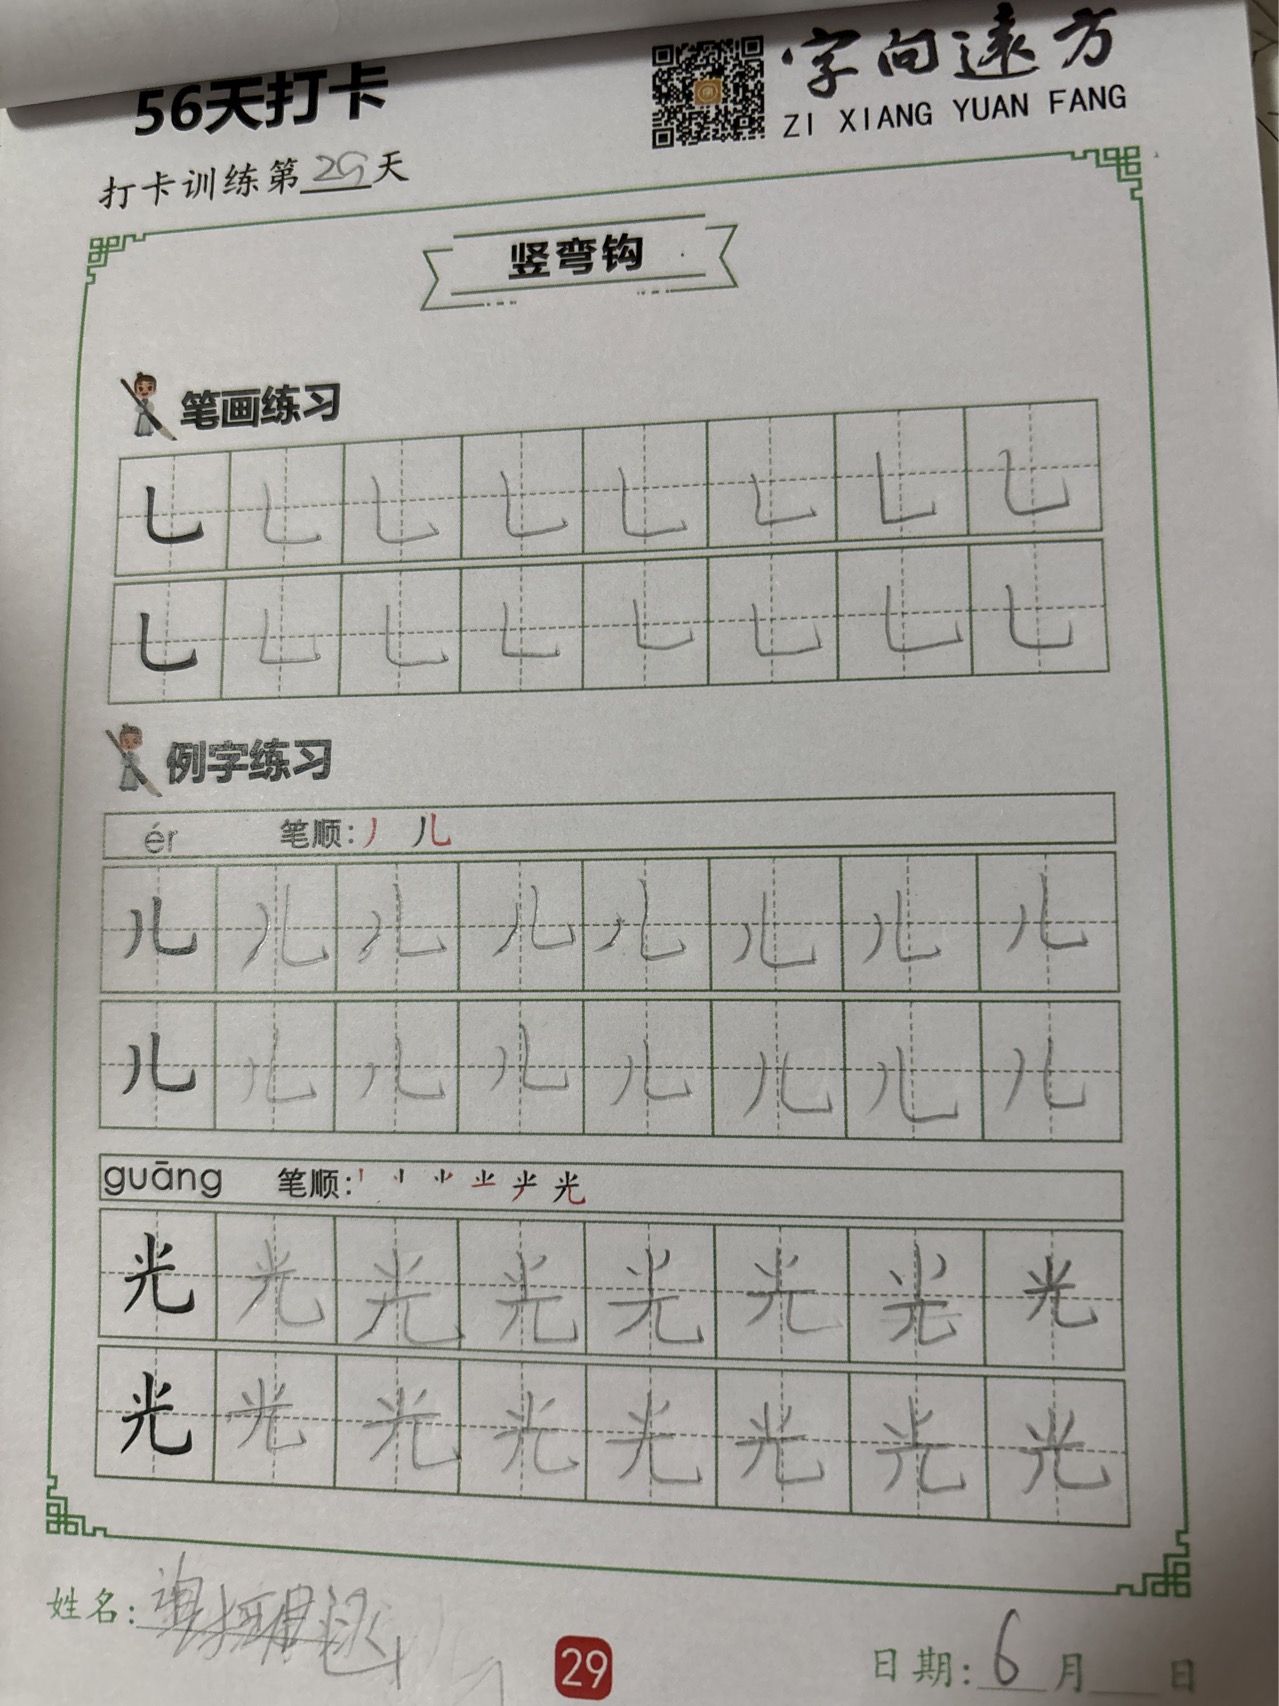 56天打卡
字向远方
ZI XIANG YUAN FANG
打卡训练第29天
竖弯钩
笔画练习
乚乚乚乚乚乚乚乚
乚乚乚乚乚乚乚乚
例字练习
ér 笔顺:丿 儿
儿儿儿儿儿儿儿儿
儿儿儿儿儿儿儿儿
guāng 笔顺:
光光光光光光光光
光光光光光光光光
姓名:
29
日期:6月 日